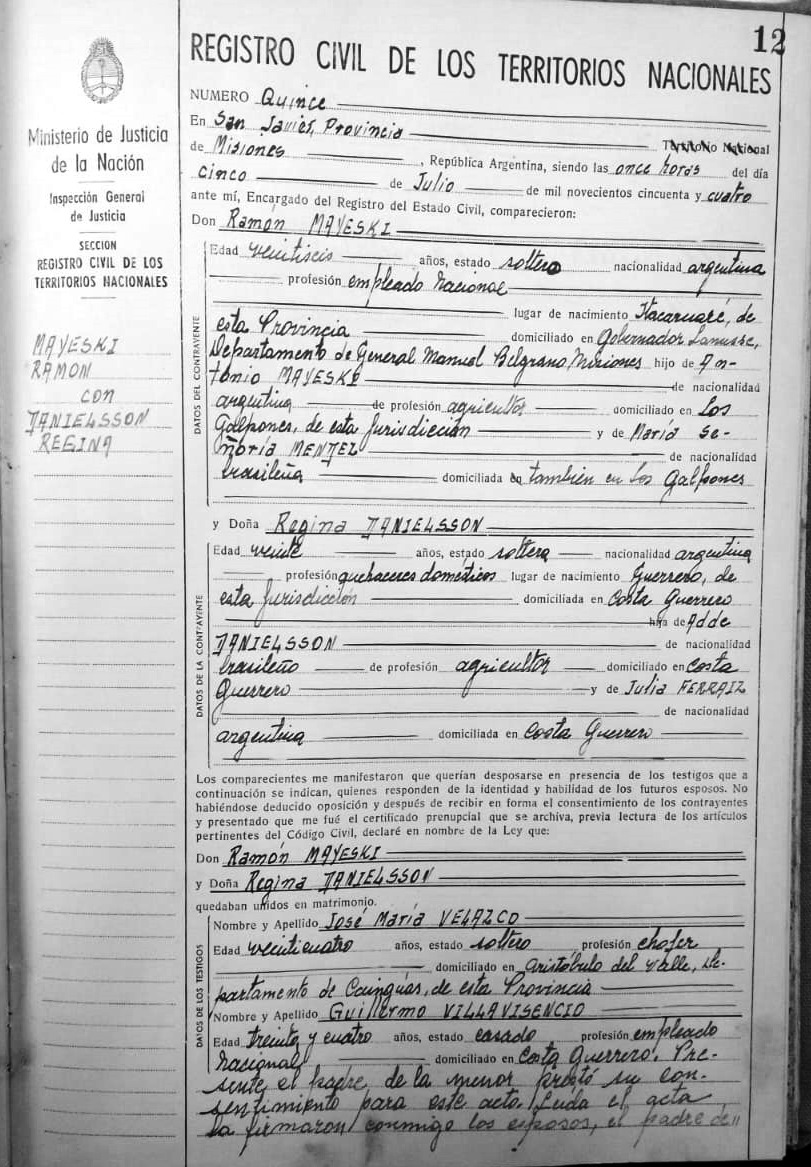 12
REGISTRO CIVIL DE LOS TERRITORIOS NACIONALES
Ministerio de Justicia
de la Nación
Inspección General
de Justicia
SECCION
REGISTRO CIVIL DE LOS
TERRITORIOS NACIONALES
MAYESKI
RAMON
CON
DANIELSSON
REGINA
NUMERO Quince
En San Javier, Provincia Territorio Nacional
de Misiones, República Argentina, siendo las once horas del día
cinco de Julio de mil novecientos cincuenta y cuatro
ante mí, Encargado del Registro del Estado Civil, comparecieron:
Don Ramón MAYESKI
DATOS DEL CONTRAYENTE
Edad veintiseis años, estado soltero nacionalidad argentina
profesión empleado Nacional
lugar de nacimiento Itacaruaré, de
esta Provincia domiciliado en Gobernador Lanusse,
Departamento de General Manuel Belgrano Misiones hijo de An-
tonio MAYESKI de nacionalidad
argentina de profesión agricultor domiciliado en Los
Galpones, de esta jurisdicción y de María Se-
ñoría MENTEZ de nacionalidad
brasileña domiciliada en también en Los Galpones
y Doña Regina DANIELSSON
DATOS DE LA CONTRAYENTE
Edad veinte años, estado soltera nacionalidad argentina
profesión quehaceres domésticos lugar de nacimiento Guerrero, de
esta jurisdicción domiciliada en Costa Guerrero
hija de Adde
DANIELSSON de nacionalidad
brasileño de profesión agricultor domiciliado en Costa
Guerrero y de Julia FERRAIZ
de nacionalidad
argentina domiciliada en Costa Guerrero
Los comparecientes me manifestaron que querían desposarse en presencia de los testigos que a
continuación se indican, quienes responden de la identidad y habilidad de los futuros esposos. No
habiéndose deducido oposición y después de recibir en forma el consentimiento de los contrayentes
y presentado que me fué el certificado prenupcial que se archiva, previa lectura de los artículos
pertinentes del Código Civil, declaré en nombre de la Ley que:
Don Ramón MAYESKI
y Doña Regina DANIELSSON
quedaban unidos en matrimonio.
DATOS DE LOS TESTIGOS
Nombre y Apellido José María VELAZCO
Edad veinticuatro años, estado soltero profesión chofer
domiciliado en Aristóbulo del Valle, De-
partamento de Cainguás, de esta Provincia
Nombre y Apellido Guillermo VILLAVISENCIO
Edad treinta y cuatro años, estado casado profesión empleado
Nacional domiciliado en Costa Guerrero. Pre-
sente el padre de la menor prestó su con-
sentimiento para este acto. Leída el acta
la firmaron conmigo los esposos, el padre de "